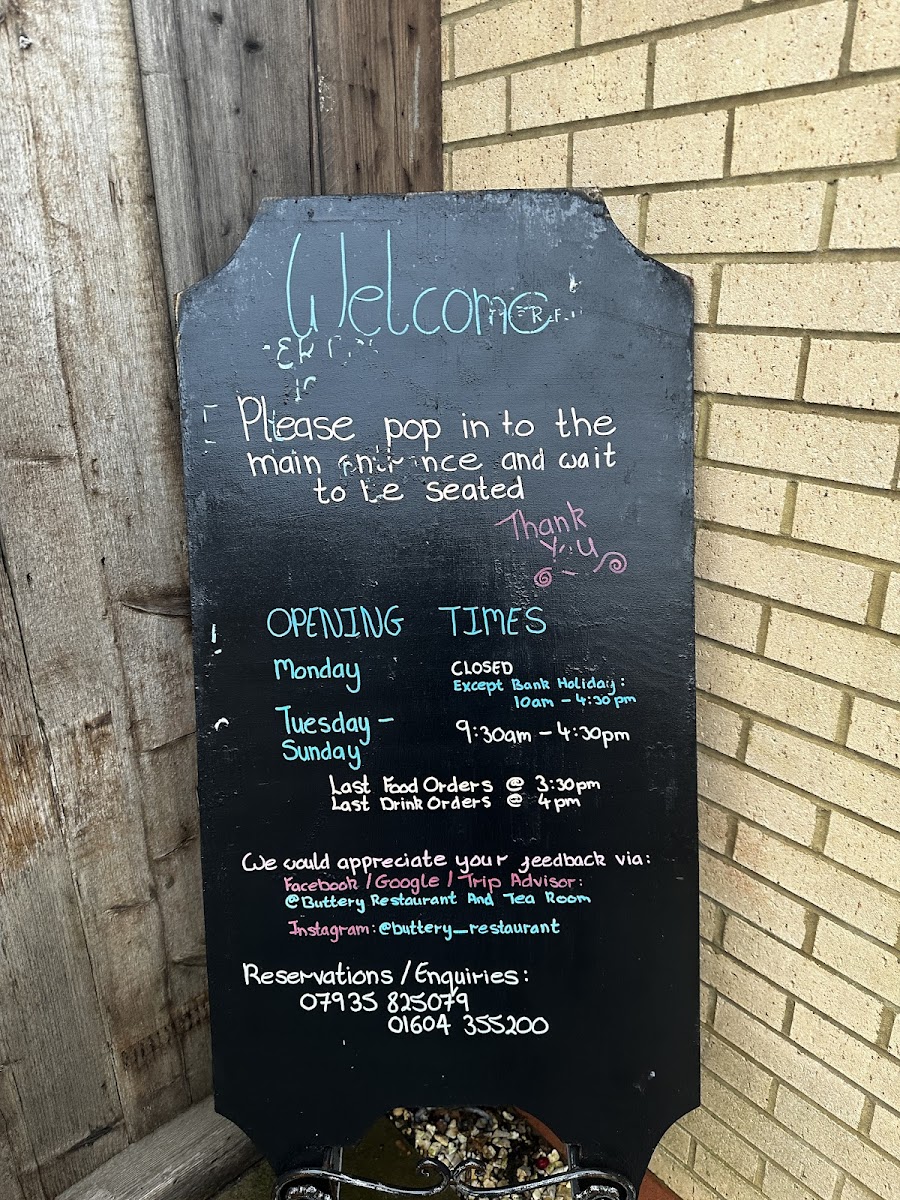 Welcome
Please pop in to the
main entrance and wait
to be seated
Thank
you
OPENING TIMES
Monday CLOSED
Except Bank Holiday:
10am - 4:30pm
Tuesday -
Sunday 9:30am - 4:30pm
Last Food Orders @ 3:30pm
Last Drink Orders @ 4pm
We would appreciate your feedback via:
Facebook / Google / Trip Advisor:
@Buttery Restaurant And Tea Room
Instagram: @buttery_restaurant
Reservations / Enquiries:
07935 825079
01604 355200